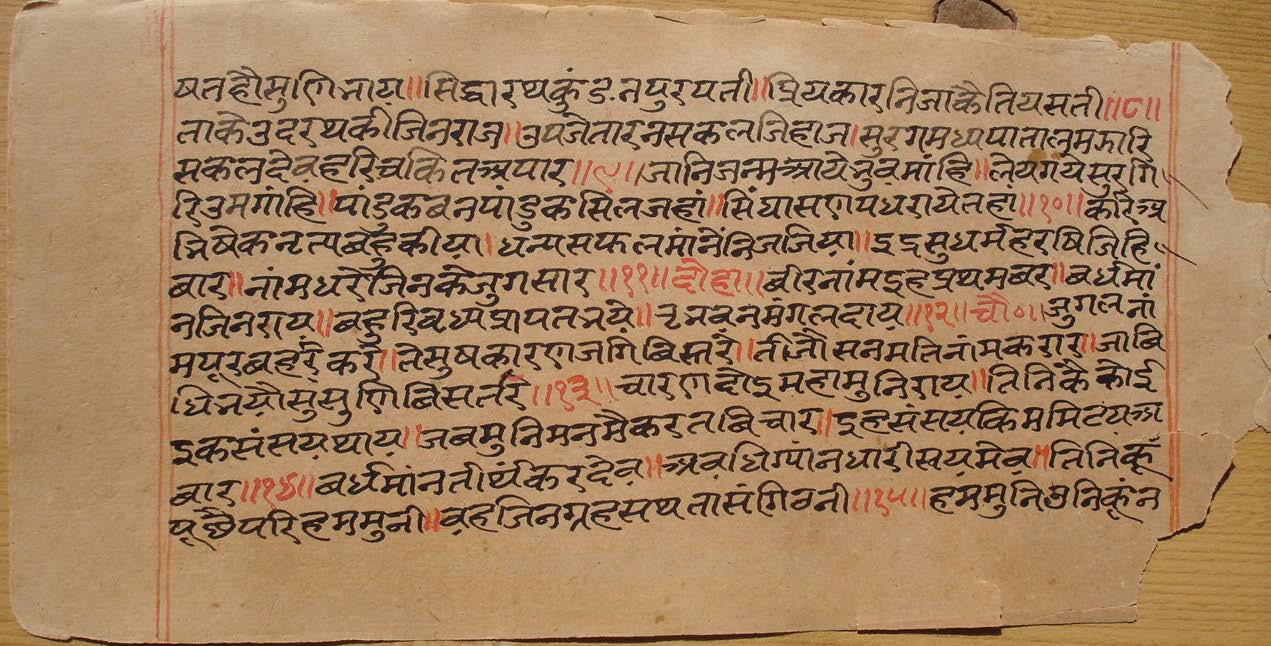 षत हौ सुणि भाय॥ सिद्धारथ कुंडनपुर पती॥ प्रियकारनि जाकै तिय सती॥८॥
ताके उदर थकी जिनराज॥ उपजे तारन सकल जिहाज। सुरग मध्य पाताल मझारि
सकल देव हरि चकित अपार॥९॥ जानि जन्म आये भुव मांहि॥ लेय गये सुरगि
रि उमगांहि॥ पांडुक बन पांडुक सिल जहां॥ सिंघासण पधराये तहां॥१०॥ करि अ
भिषेक नृत्य बहु कीया। धन्य सफल मांनें निज जिया॥ इंद्र सुधर्म हरषि जिहि
बार॥ नांम धरे जिनके जुग सार॥११॥ दोहा॥ बीर नांम इह प्रथम बर॥ बर्धमां
न जिनराय॥ बहुरि बध्य प्रापत भये॥ त्रभवन मंगलदाय॥१२॥ चौ०॥ जुगल नां
म पूर बहरं करै॥ ते सुष कारण जगि बिस्तरै॥ तीजौ सनमति नांम करार॥ जा बि
धि भयौ सु सुणि बिसतार॥१३॥ चारण दोइ महा मुनिराय॥ तिनिकै कोई
इक संसय थाय॥ जब मुनि मन मै करत बिचार॥ इह संसय किम मिटय अ
बार॥१४॥ बर्धमांन तीर्थंकर देव॥ अवधि ग्यांन धारी सयमेव॥ तिनिकूं
पूछै परि हम मुनी॥ वह जिन ग्रहसथ ता संगि बनी॥१५॥ हम मुनि उनिकूं न